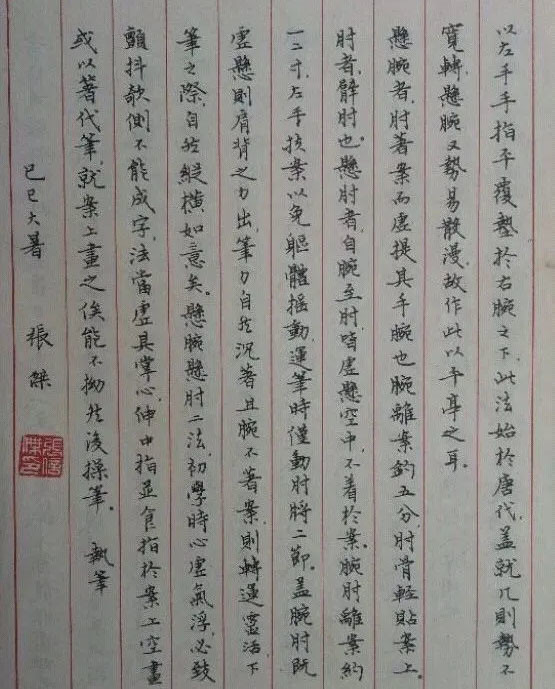 以左手手指平覆墊於右腕之下，此法始於唐代，蓋就几則勢不
寬轉，懸腕又勢易散漫，故作此以平亭之耳。
懸腕者，肘著案而虛提其手腕也。腕離案約五分，肘骨輕貼案上。
肘者，臂肘也。懸肘者，自腕至肘，皆虛懸空中，不着於案。腕肘離案約
一二寸，左手按案以免軀體搖動，運筆時僅動肘將二節。蓋腕肘既
虛懸則肩背之力出，筆力自然沉著且腕不著案，則轉運靈活下
筆之際，自然縱橫如意矣。懸腕懸肘二法，初學時心虛氣浮，必致
顫抖欹側不能成字，法當虛其掌心，伸中指並食指於案上空畫
或以箸代筆，就案上畫之俟能不拗然後操筆。 執筆
己巳大暑 張傑